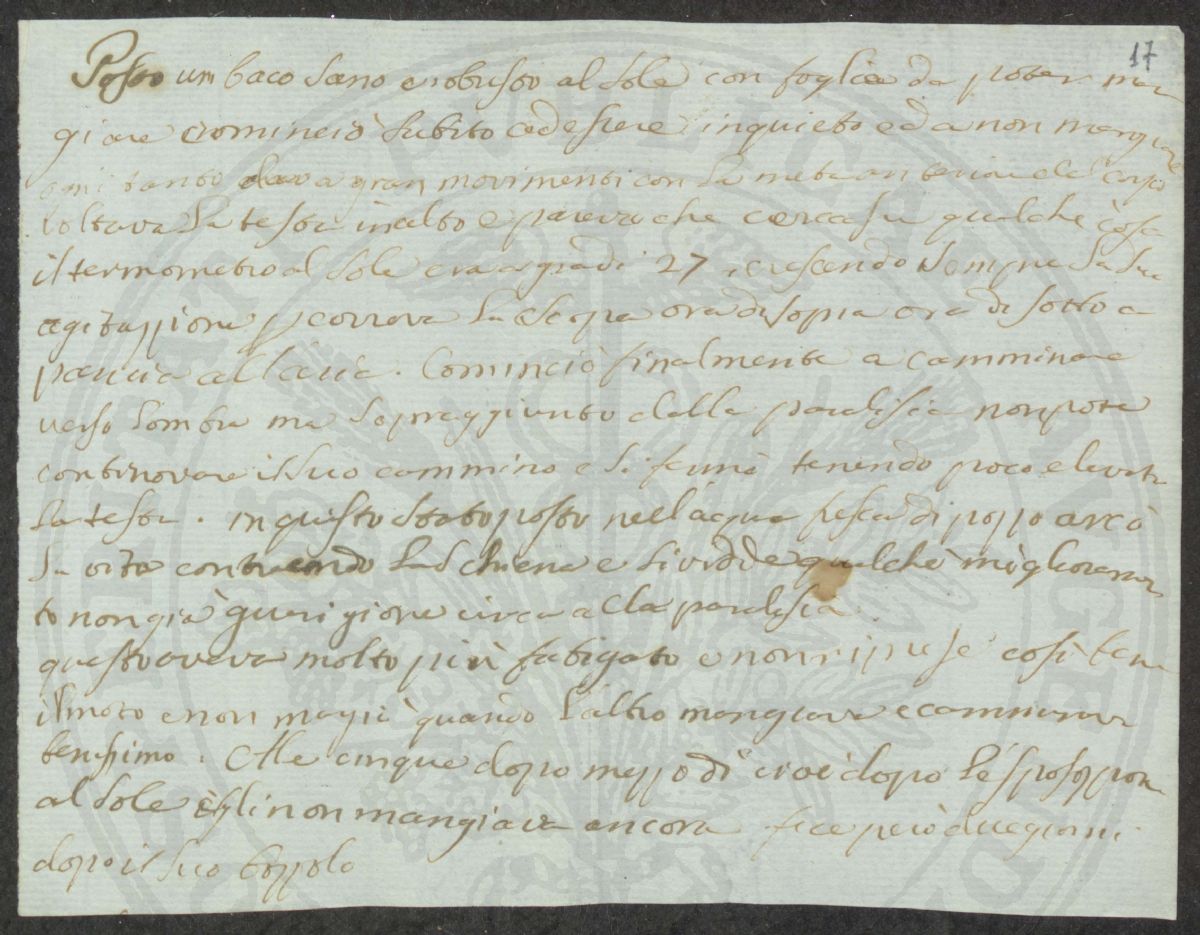 17
Posto un baco sano e robusto al sole con foglie da poter man
giare cominciò subito ad essere inquieto ed a non mangiare
ogni tanto dava gran movimenti con la metà anteriore del corpo
voltava la testa in alto e pareva che cercasse qualche cosa
il termometro al sole era a gradi 27, crescendo sempre la sua
agitazzione scorreva la scopa ora di sopra ora di sotto a
pancia all'aria. Cominciò finalmente a camminare
verso l'ombra ma sopraggiunto dalla paralisia non potè
continovare il suo cammino e si fermò tenendo poco elevata
la testa. in questo stato posto nell'acqua fresca di pozzo arcò
la vita contraendo la schiena e si vedde qualche miglioramen
to non già guarigione circa alla paralisia.
questo aveva molto più fatigato e non riprese così bene
il moto e non mangiò quando l'altro mangiava e camminava
benissimo. Alle cinque dopo mezzo dì cioè dopo l'esposizzione
al sole egli non mangiava ancora fece però due giorni
dopo il suo bozzolo